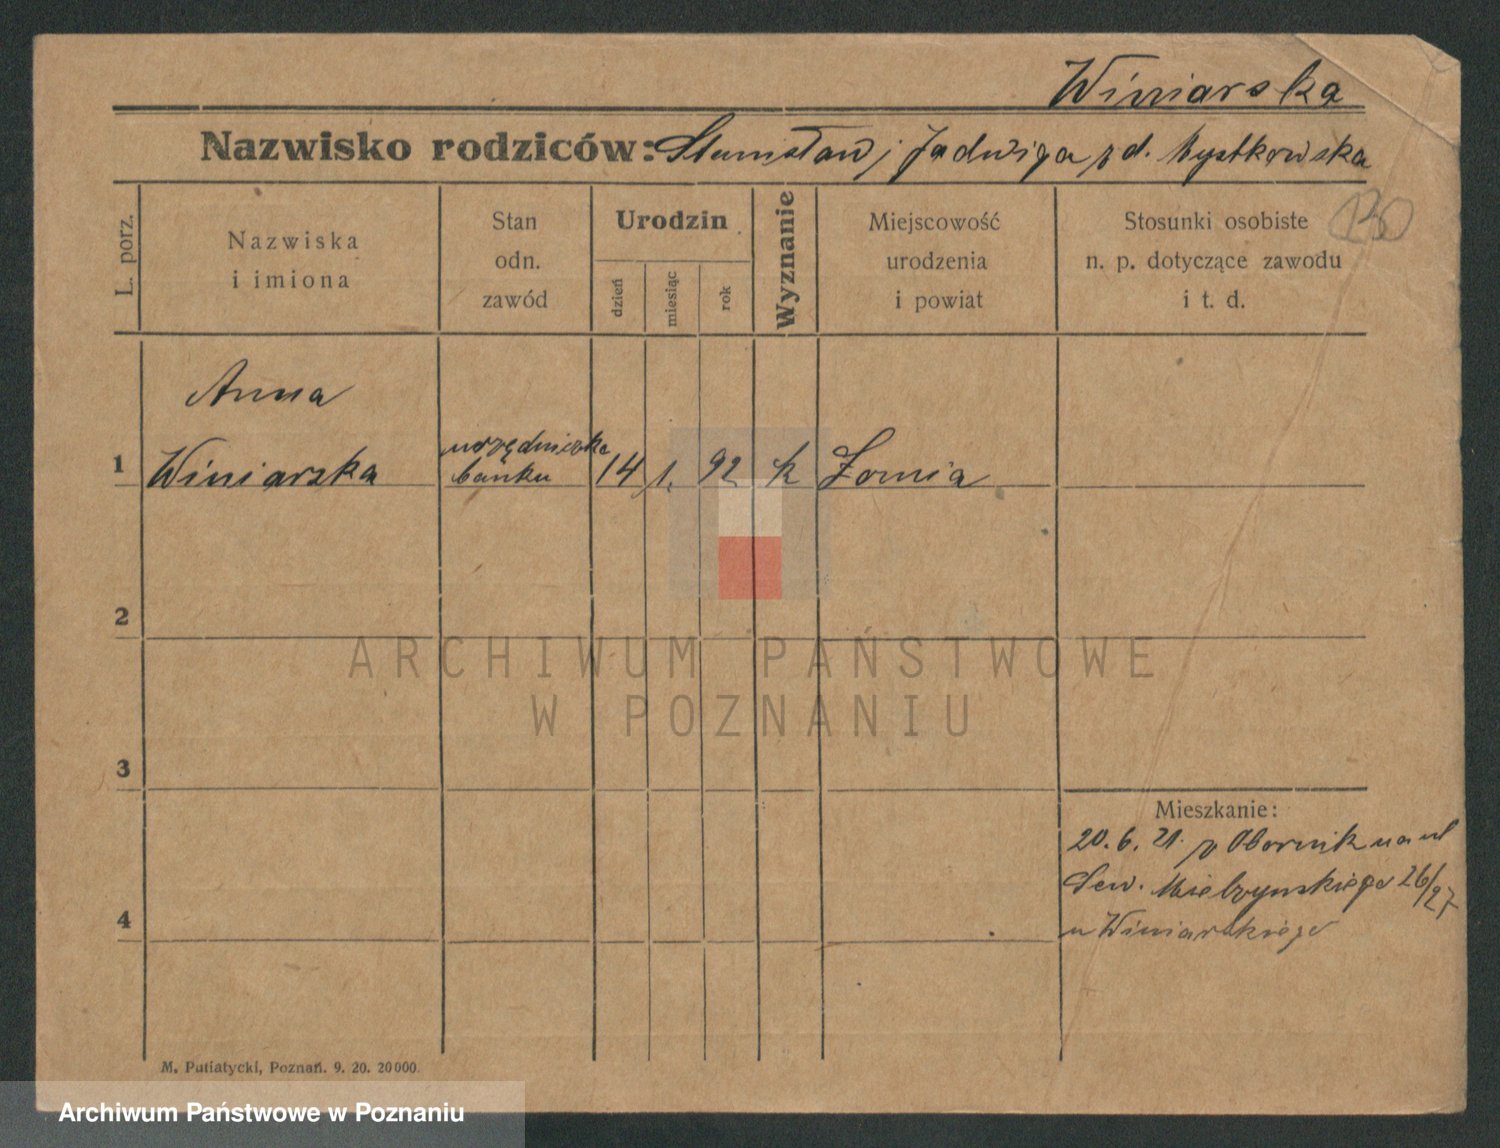 Winiarska
Nazwisko rodziców: Stanisław i Jadwiga z d. Mystkowska
L. porz.
Nazwiska
i imiona
Stan
odn.
zawód
Urodzin
dzień
miesiąc
rok
Wyznanie
Miejscowość
urodzenia
i powiat
Stosunki osobiste
n. p. dotyczące zawodu
i t. d.
130
Anna
1 Winiarska
urzędniczka
banku
14 1. 92 k Łomia
2
ARCHIWUM PAŃSTWOWE
W POZNANIU
3
Mieszkanie:
20. 6. 21. z Obornik na ul
Sew. Mielzynskiego 26/27
4
u Winiarskiego
M. Putiatycki, Poznań. 9. 20. 20000.
Archiwum Państwowe w Poznaniu